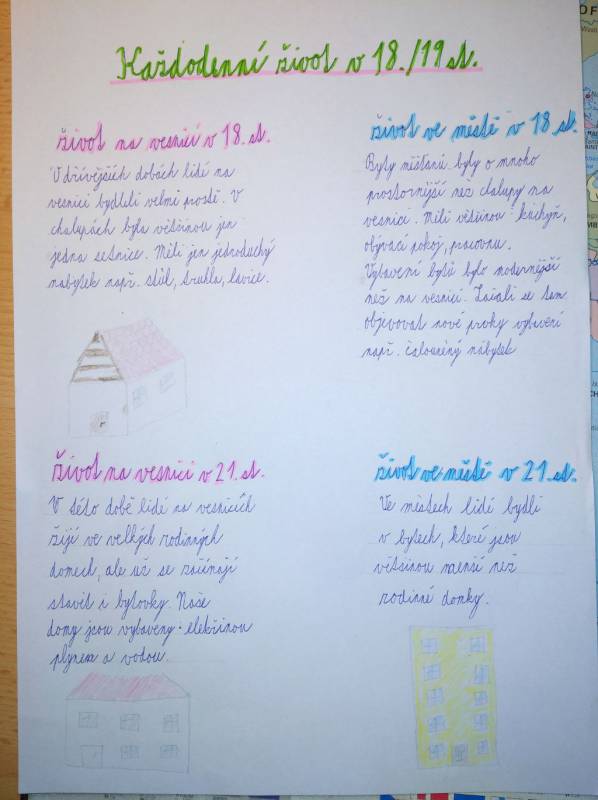 Každodenní život v 18./19 st.
život na vesnici v 18. st.
V dřívějších dobách lidé na
vesnici bydleli velmi prostě. V
chalupách byla většinou jen
jedna sednice. Měli jen jednoduchý
nabytek např. stůl, truhla, lavice.
život ve městě v 18 st.
Byty měšťanů byly o mnoho
prostornější než chalupy na
vesnici. Měli většinou: kuchyň,
obývací pokoj, pracovnu.
Vybavení bytů bylo modernější
než na vesnici. Začali se tam
objevovat nové prvky vybavení
např. čalouněný nábytek
život na vesnici v 21. st.
V této době lidé na vesnicích
žijí ve velkých rodinných
domech, ale už se začínají
stavit i bytovky. Naše
domy jsou vybaveny elektřinou
plynem a vodou.
život ve městě v 21. st.
Ve městech lidé bydlí
v bytech, které jsou
většinou menší než
rodinné domky.